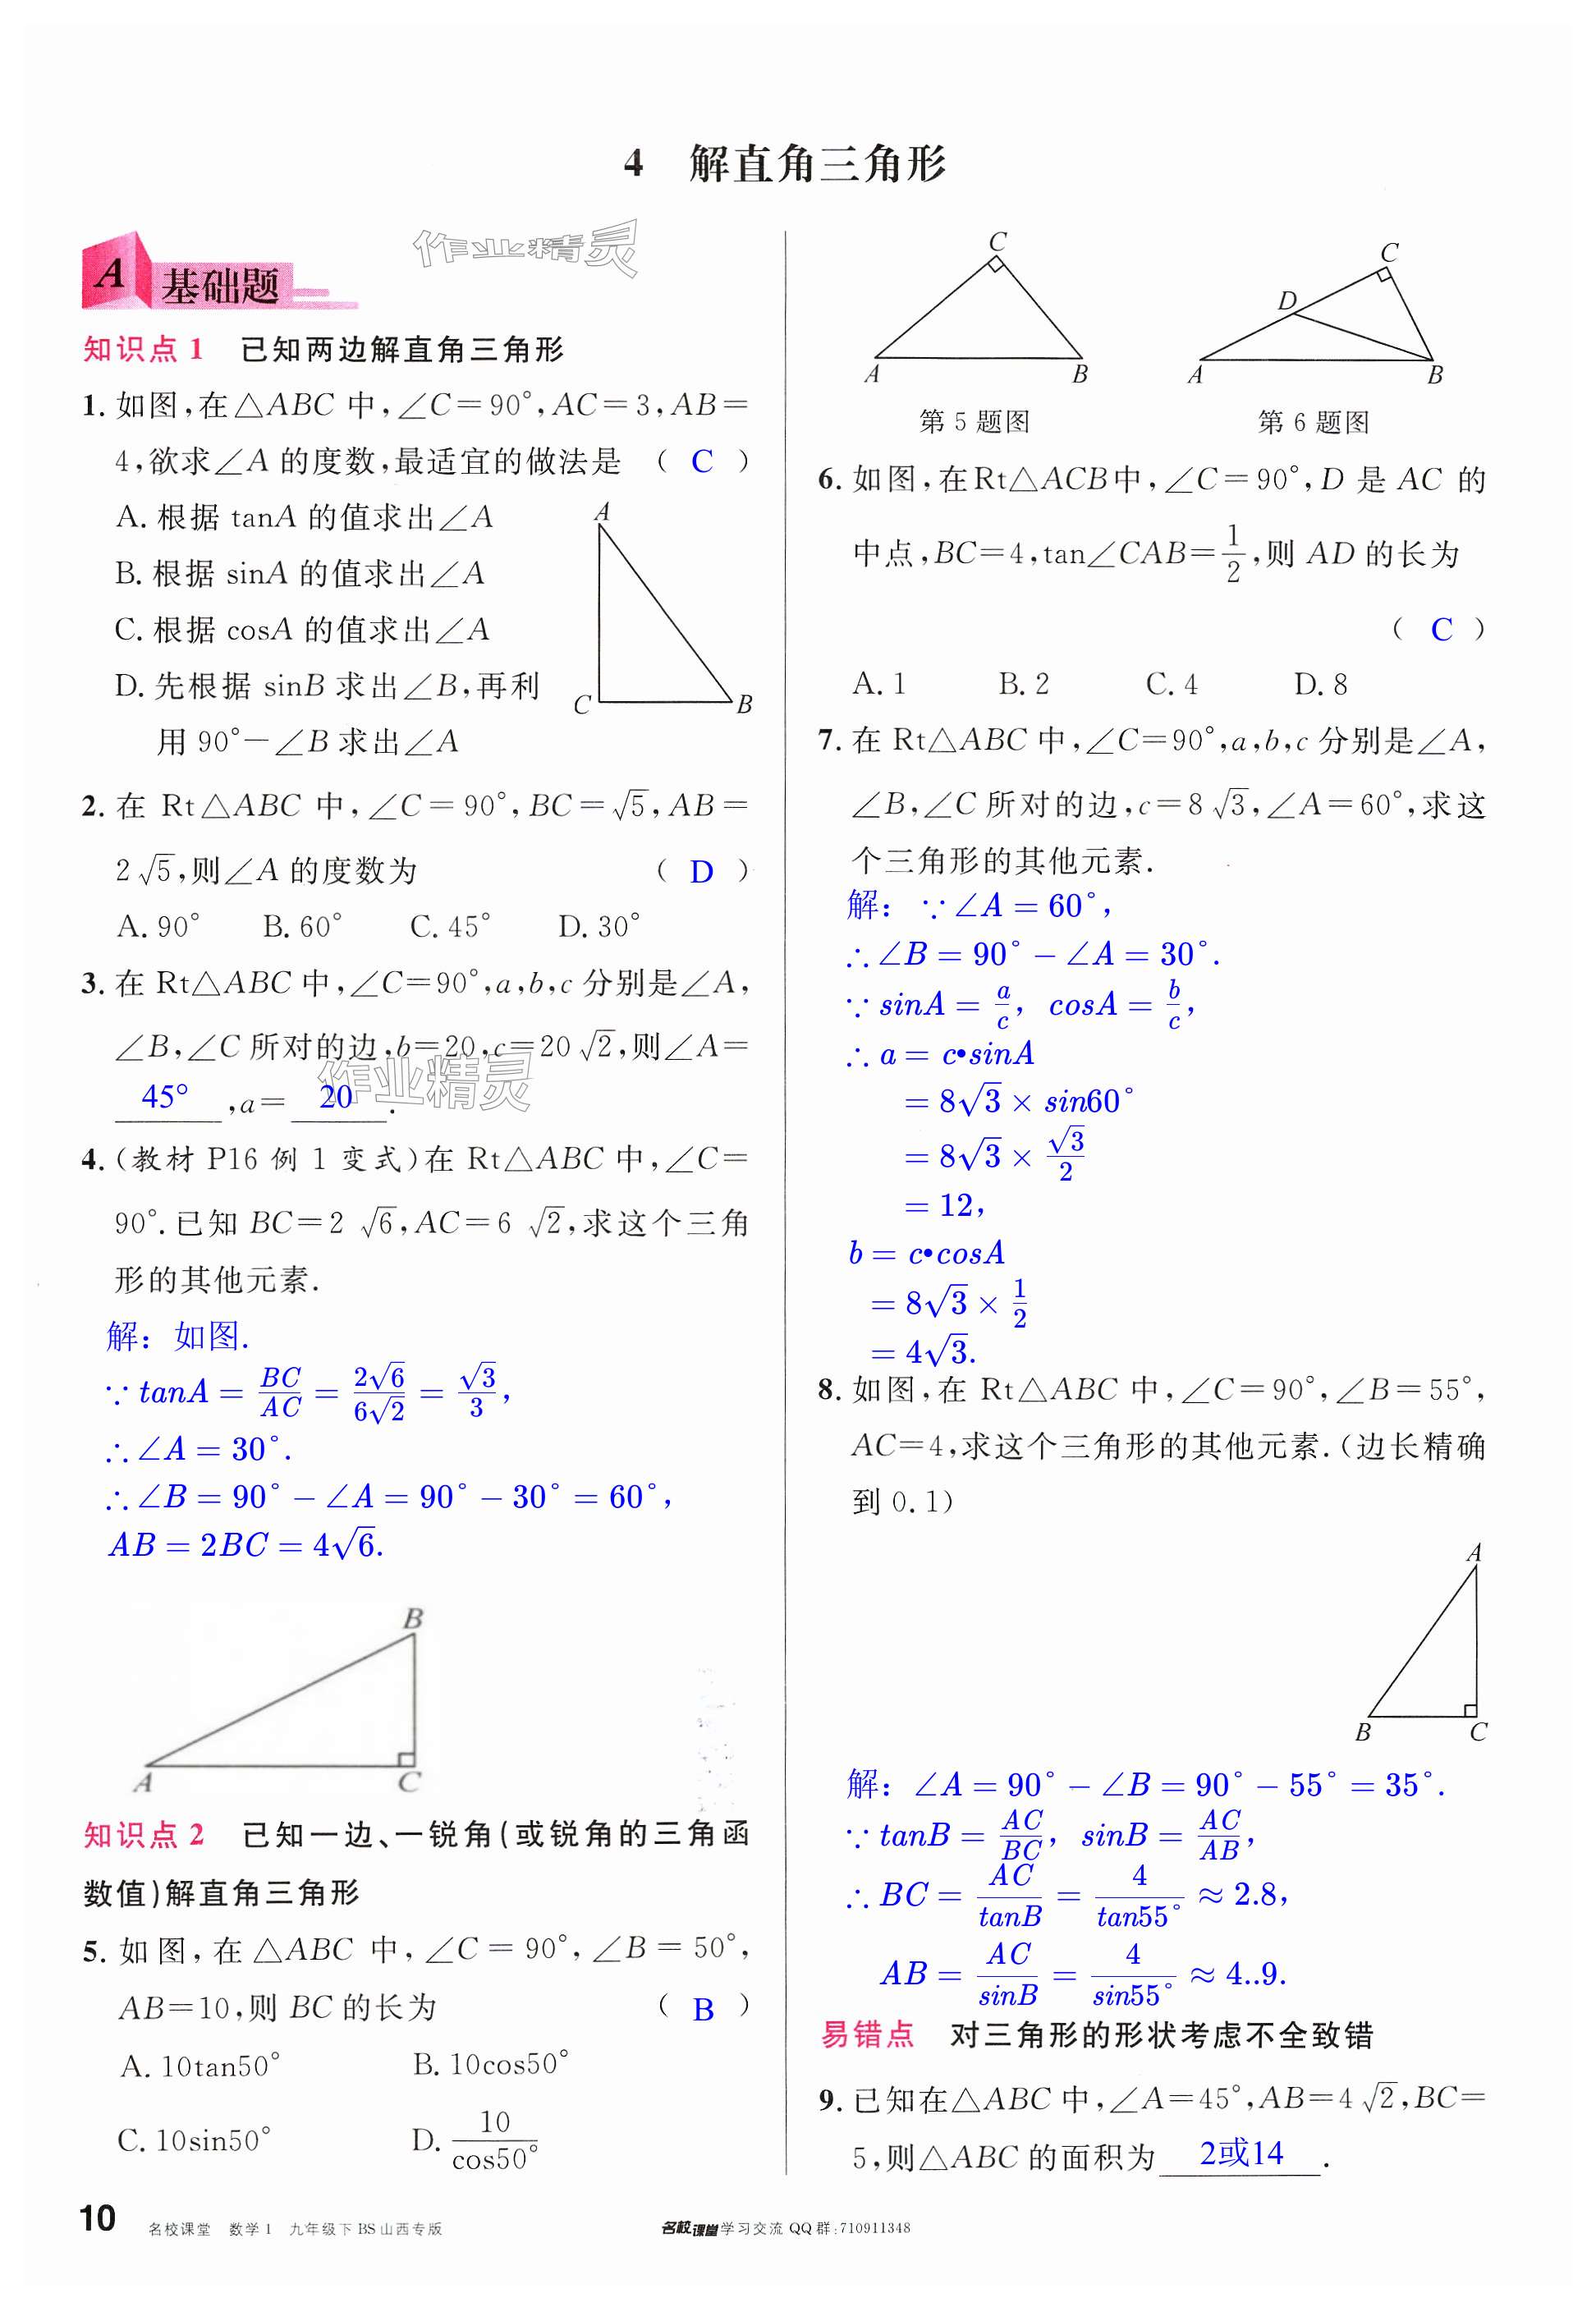 4 解直角三角形
作业精灵
A 基础题
知识点 1 已知两边解直角三角形
1. 如图,在△ABC 中,∠C=90°,AC=3,AB=
4,欲求∠A 的度数,最适宜的做法是 ( C )
A. 根据 tanA 的值求出∠A
B. 根据 sinA 的值求出∠A
C. 根据 cosA 的值求出∠A
D. 先根据 sinB 求出∠B,再利
用 90°-∠B 求出∠A
A
C
B
2. 在 Rt△ABC 中,∠C=90°,BC=√5,AB=
2√5,则∠A 的度数为 ( D )
A. 90° B. 60° C. 45° D. 30°
3. 在 Rt△ABC 中,∠C=90°,a,b,c 分别是∠A,
∠B,∠C 所对的边,b=20,c=20√2,则∠A=
45° ,a= 20 .
作业精灵
4. (教材 P16 例 1 变式)在 Rt△ABC 中,∠C=
90°.已知 BC=2√6,AC=6√2,求这个三角
形的其他元素.
解: 如图.
∵ tanA = BC/AC = 2√6/6√2 = √3/3,
∴ ∠A = 30°.
∴ ∠B = 90° - ∠A = 90° - 30° = 60°,
AB = 2BC = 4√6.
B
A
C
知识点 2 已知一边、一锐角(或锐角的三角函
数值)解直角三角形
5. 如图,在△ABC 中,∠C=90°,∠B=50°,
AB=10,则 BC 的长为 ( B )
A. 10tan50° B. 10cos50°
C. 10sin50° D. 10/cos50°
C
A
B
第 5 题图
C
D
A
B
第 6 题图
6. 如图,在Rt△ACB中,∠C=90°,D 是 AC 的
中点,BC=4,tan∠CAB=1/2,则 AD 的长为
( C )
A. 1 B. 2 C. 4 D. 8
7. 在 Rt△ABC 中,∠C=90°,a,b,c 分别是∠A,
∠B,∠C 所对的边,c=8√3,∠A=60°,求这
个三角形的其他元素.
解: ∵ ∠A = 60°,
∴ ∠B = 90° - ∠A = 30°.
∵ sinA = a/c, cosA = b/c,
∴ a = c•sinA
= 8√3 × sin60°
= 8√3 × √3/2
= 12,
b = c•cosA
= 8√3 × 1/2
= 4√3.
8. 如图,在 Rt△ABC 中,∠C=90°,∠B=55°,
AC=4,求这个三角形的其他元素.(边长精确
到 0.1)
A
B
C
解: ∠A = 90° - ∠B = 90° - 55° = 35°.
∵ tanB = AC/BC, sinB = AC/AB,
∴ BC = AC/tanB = 4/tan55° ≈ 2.8,
AB = AC/sinB = 4/sin55° ≈ 4..9.
易错点 对三角形的形状考虑不全致错
9. 已知在△ABC 中,∠A=45°,AB=4√2,BC=
5,则△ABC 的面积为 2或14 .
10 名校课堂 数学1 九年级下 BS 山西专版
名校课堂学习交流 QQ 群:710911348